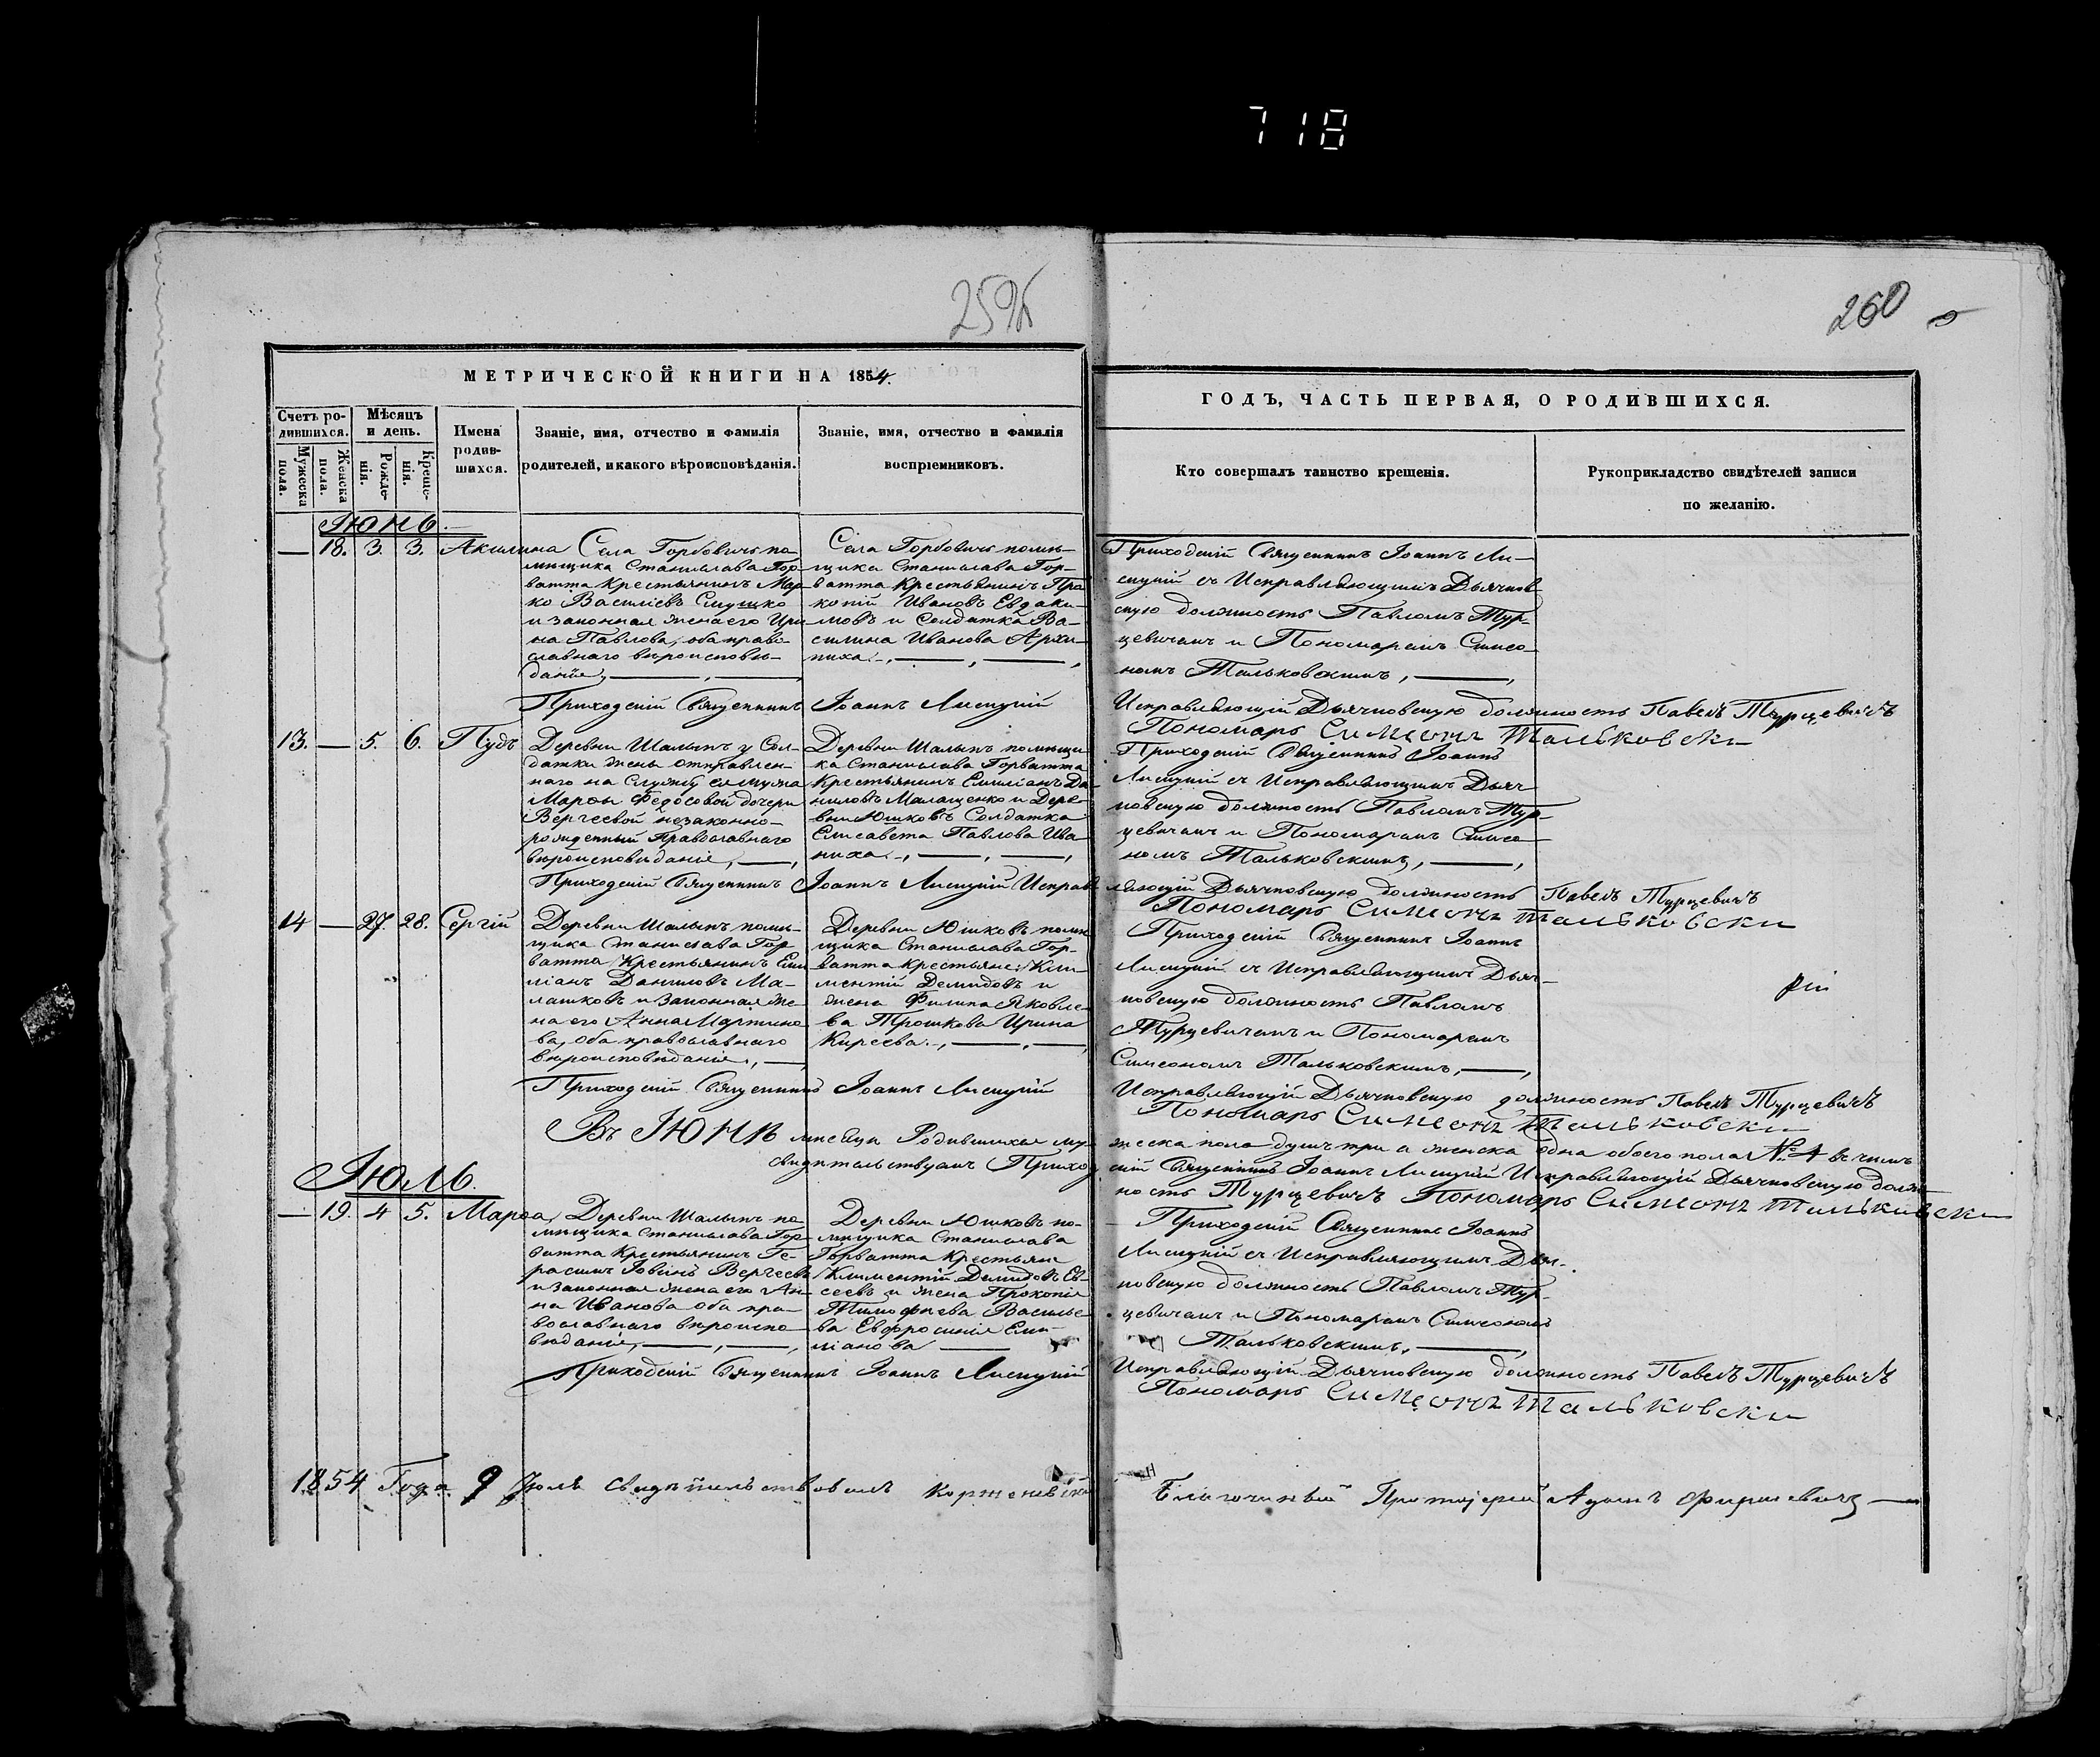 718
260
МЕТРИЧЕСКОЙ КНИГИ НА 1854.
Счетъ родившихся.
Мужеска пола.
Женска пола.
Мѣсяцъ и день.
Рожденія.
Крещенія.
Имена родившихся.
Званіе, имя, отчество и фамилія
родителей, и какого вѣроисповѣданія.
Званіе, имя, отчество и фамилія
воспріемниковъ.
ГОДЪ, ЧАСТЬ ПЕРВАЯ, О РОДИВШИХСЯ.
Кто совершалъ таинство крещенія.
Рукоприкладство свидѣтелей записи
по желанію.
Июнь.
— 18. 3. 3. Акилина
Села Горбовичь по-
мѣщика Станислава Гор-
ватта Крестьянинъ Мар-
ко Василіевъ
и законная жена его Ири-
на Павлова, оба право-
славнаго вѣроисповѣ-
данія,
Села Горбовичь помѣ-
щика Станислава Гор-
ватта Крестьянинъ Про-
копій Ивановъ Евдаки-
мовъ и Солдатка Ва-
силина Иванова Архи-
пиха.
Приходскій Священникъ Іоаннъ Ли-
сицкій съ Исправляющимъ Дьячков-
скую должность Павломъ Тур-
цевичемъ и Пономаремъ Симео-
номъ Тальковскимъ,
Приходскій Священникъ Іоаннъ Лисицкій
Исправляющій Дьячковскую должность Павелъ Турцевичъ
Пономарь Симеонъ Тальковски
13. — 5. 6. Пудъ
Деревни Шалынъ у Сол-
датки жены отправлен-
наго на Службу ея мужа
Марѳы Федосовой дочери
Вергеевой незаконно-
рожденный Православнаго
вѣроисповѣданія,
Деревни Шалынъ помѣщи-
ка Станислава Горватта
Крестьянинъ Емиліанъ Да-
ниловъ Малащенко и Дере-
вни Юшковъ Солдатка
Елисавета Павлова Ива-
ниха.
Приходскій Священникъ Іоаннъ
Лисицкій съ Исправляющимъ Дьяч-
ковскую должность Павломъ Тур-
цевичемъ и Пономаремъ Симео-
номъ Тальковскимъ,
Приходскій Священникъ Іоаннъ Лисицкій Исправляющій Дьячковскую должность Павелъ Турцевичъ
Пономарь Симеонъ Тальковски
14 — 27. 28. Сергій
Деревни Шалынъ помѣ-
щика Станислава Гор-
ватта Крестьянинъ Еми-
ліанъ Даниловъ Ма-
лашковъ и Законная же-
на его Анна Мартино-
ва, оба православнаго
вѣроисповѣданія,
Деревни Юшковъ помѣ-
щика Станислава Гор-
ватта крестьяне: Кли-
ментій Демидовъ и
жена Филипа Яковле-
ва Трошкова Ирина
Киреева.
Приходскій Священникъ Іоаннъ
Лисицкій съ Исправляющимъ Дьяч-
ковскую должность Павломъ
Турцевичемъ и Пономаремъ
Симеономъ Тальковскимъ,
Приходскій Священникъ Іоаннъ Лисицкій
Исправляющій Дьячковскую должность Павелъ Турцевичъ
Пономарь Симеонъ Тальковски
Въ Июнѣ мѣсяцѣ Родившихся мужеска пола душъ три а женска одна обоего пола № 4 въ чемъ
свидѣтельствуемъ Приходскій Священникъ Іоаннъ Лисицкій Исправляющій Дьячковскую должность
Турцевичъ Пономарь Симеонъ Тальковски
Июль.
— 19. 4 5. Марѳа,
Деревни Шалынъ по-
мѣщика Станислава Гор-
ватта Крестьянинъ Ге-
расимъ Іовинъ Вергеевъ
и законная жена его Ан-
на Иванова оба пра-
вославнаго вѣроиспо-
вѣданія,
Деревни Юшковъ по-
мѣщика Станислава
Горватта Крестьяне
Климентій Демидовъ Ев-
сеевъ и жена Прокопія
Тимофѣева Василье-
ва Евфросинія Еми-
ліанова
Приходскій Священникъ Іоаннъ
Лисицкій съ Исправляющимъ Дьяч-
ковскую должность Павломъ Тур-
цевичемъ и Пономаремъ Симеономъ
Тальковскимъ,
Приходскій Священникъ Іоаннъ Лисицкій
Исправляющій Дьячковскую должность Павелъ Турцевичъ
Пономарь Симеонъ Тальковски
1854 Года 9 Июля Свидѣтельствовалъ Корженевскій Благочинный Протоіерей Адамъ